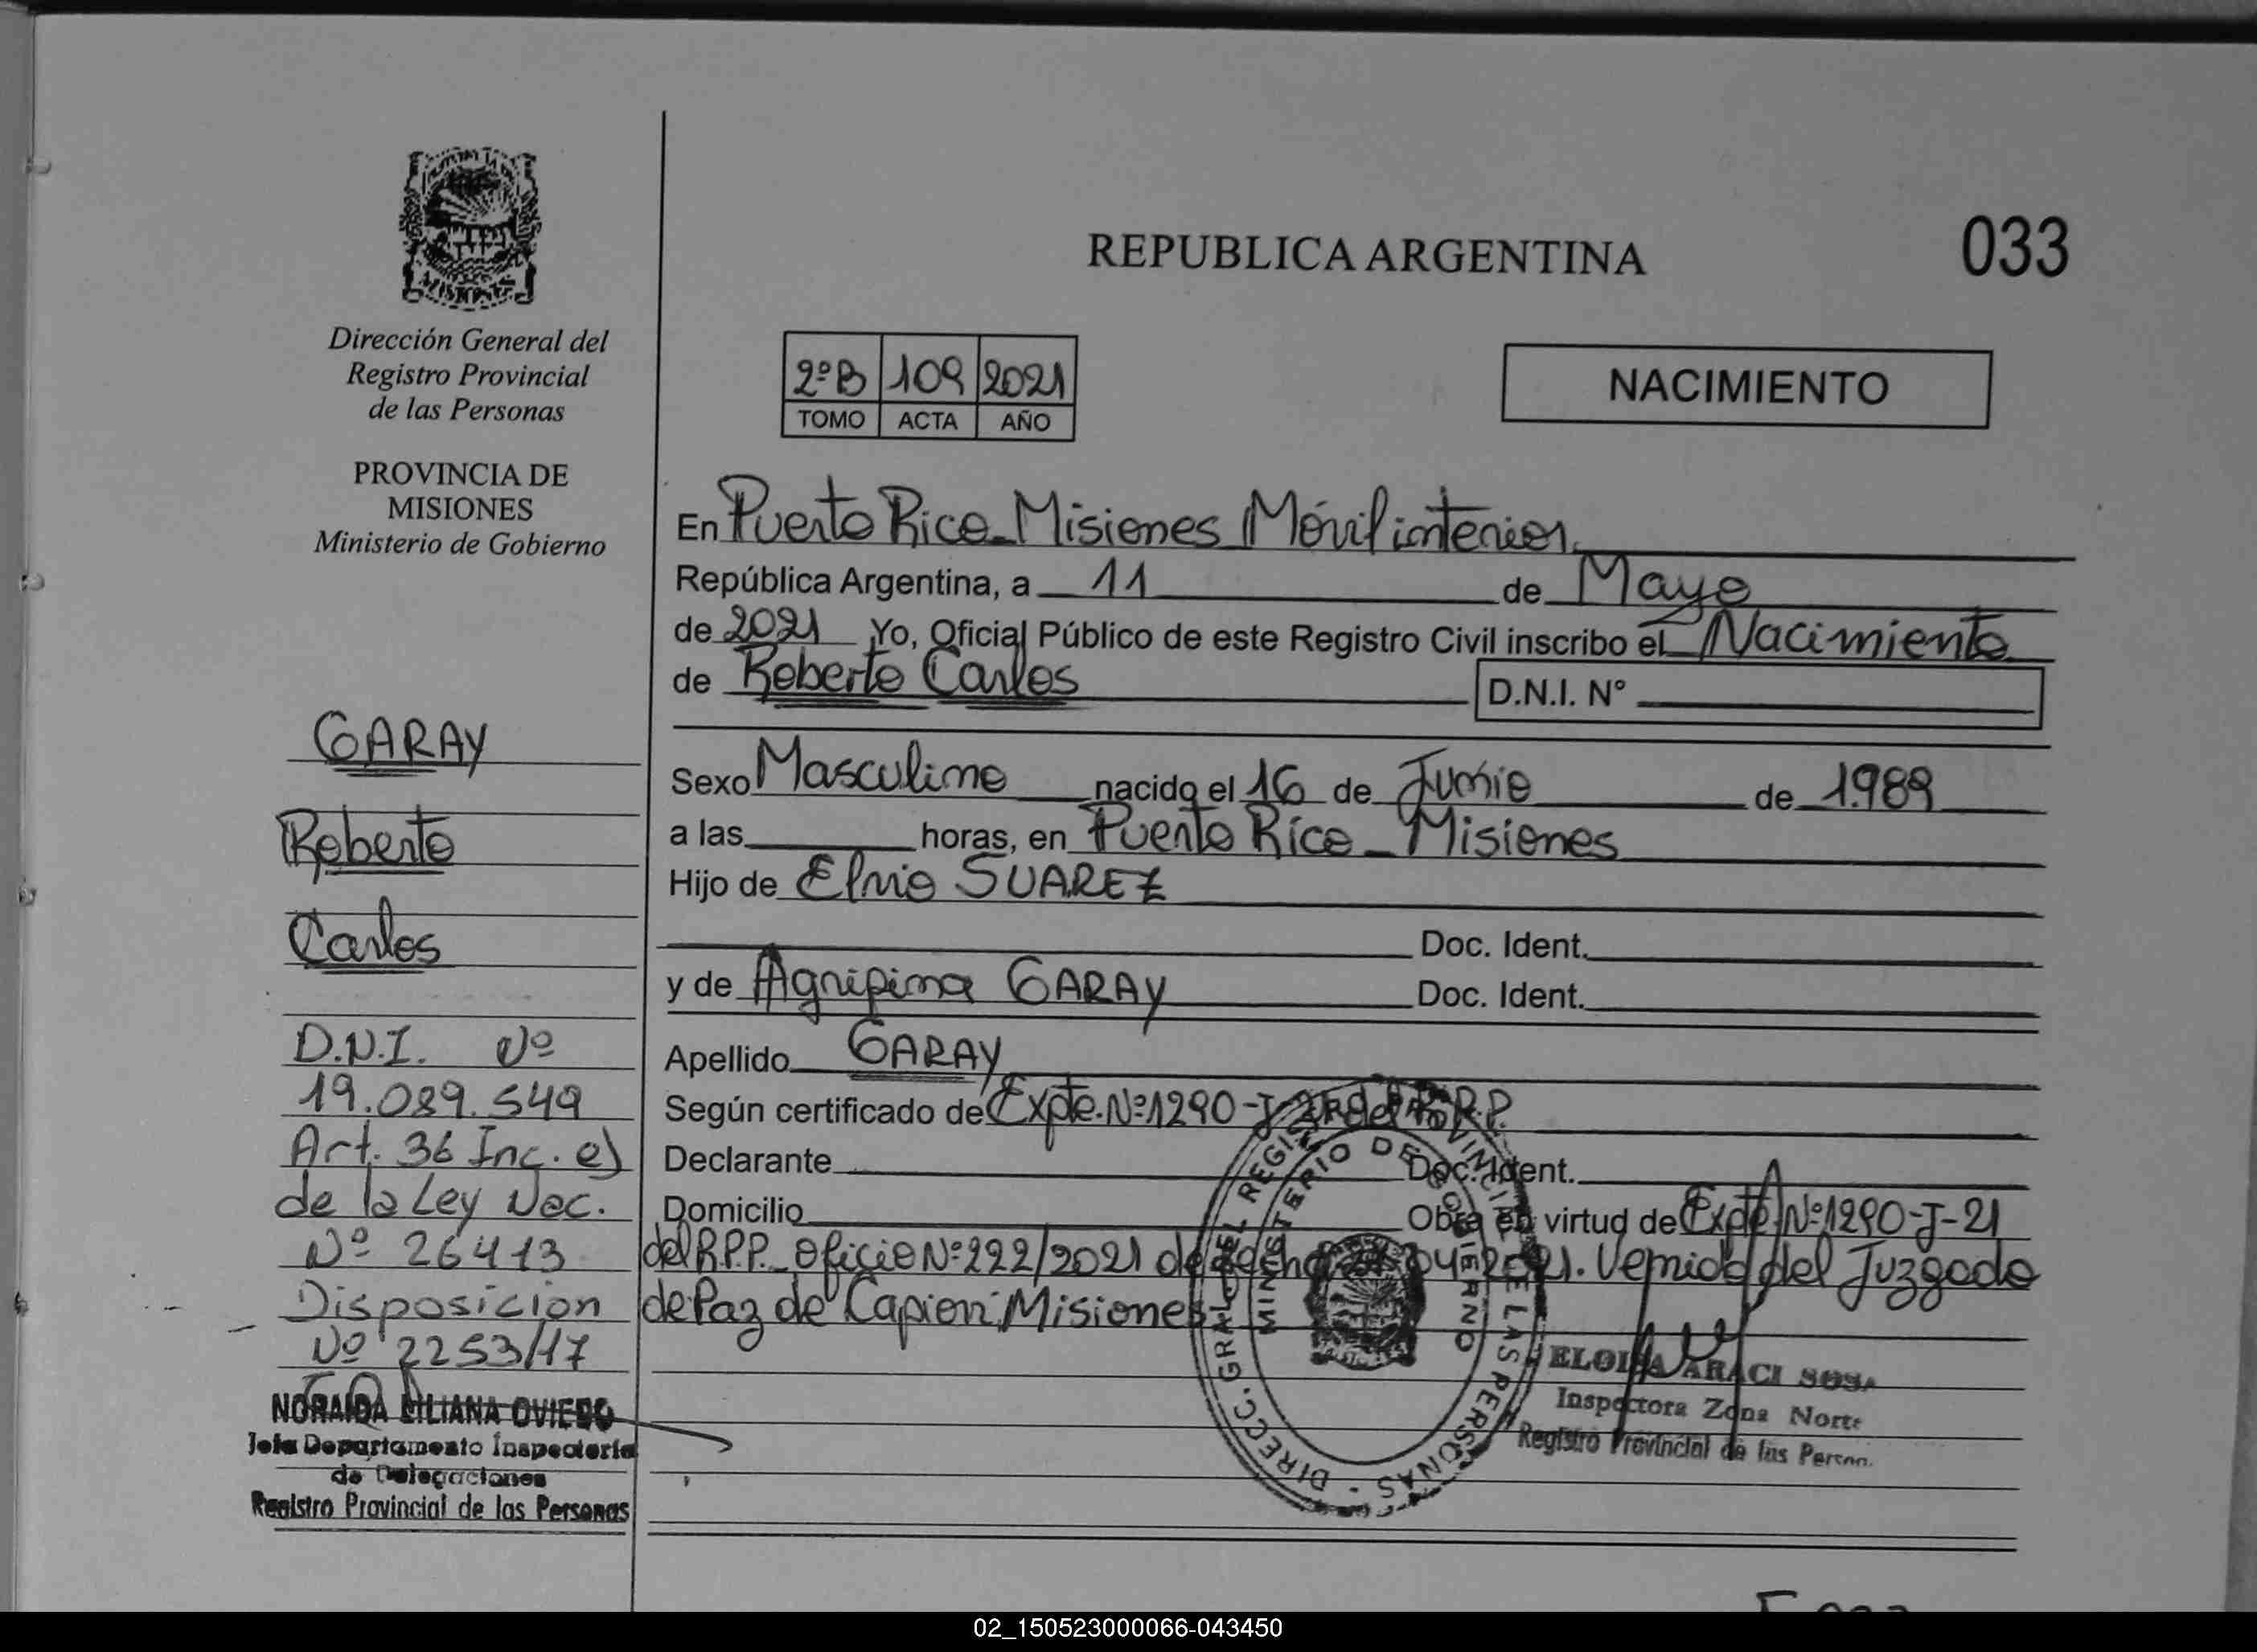 033
REPUBLICA ARGENTINA
Dirección General del
Registro Provincial
de las Personas
PROVINCIA DE
MISIONES
Ministerio de Gobierno
2ºB 109 2021
TOMO ACTA AÑO
NACIMIENTO
En Puerto Rico - Misiones Móvil interior
República Argentina, a 11 de Mayo
de 2021 Yo, Oficial Público de este Registro Civil inscribo el Nacimiento
de Roberto Carlos D.N.I. N°
Sexo Masculino nacido el 16 de Junio de 1989
a las horas, en Puerto Rico - Misiones
Hijo de Elvio SUAREZ
Doc. Ident.
y de Agripina GARAY Doc. Ident.
Apellido GARAY
Según certificado de Expte. Nº 1290-J-21 del R.P.P.
Declarante Doc. Ident.
Domicilio Obra en virtud de Expte Nº 1290-J-21
del R.P.P. Oficio Nº 222/2021 de fecha 2021. Venida del Juzgado
de Paz de Capioví Misiones
GARAY
Roberto
Carlos
D.N.I. Nº
19.089.549
Art. 36 Inc. e)
de la Ley Nac.
Nº 26413
Disposición
Nº 2253/17
NORAIDA LILIANA OVIEDO
Jefa Departamento Inspectoría
de Delegaciones
Registro Provincial de las Personas
DIRECC. GRAL. DEL REGISTRO PROVINCIAL DE LAS PERSONAS
MINISTERIO DE GOBIERNO
ELOISA ARACI SOSA
Inspectora Zona Norte
Registro Provincial de las Person.
02_150523000066-043450